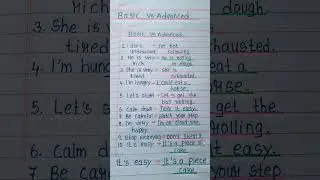 Basic vs Advanced
Basic vs Advanced.
1. I don't → I'm not
understand following.
2. He is very → He is rolling
rich in dough.
3. She is very → she is
tired exhausted.
4. I'm hungry → I could eat a
horse.
5. Let's start → Let's get the
ball rolling.
6. Calm down → Take it easy.
7. Be careful → Watch your step
8. I'm very → I'm on cloud nine
happy.
9. Stop worrying → Don't sweat it
10. It's easy → It's a piece of
cake.
It's easy → It's a piece
cake.